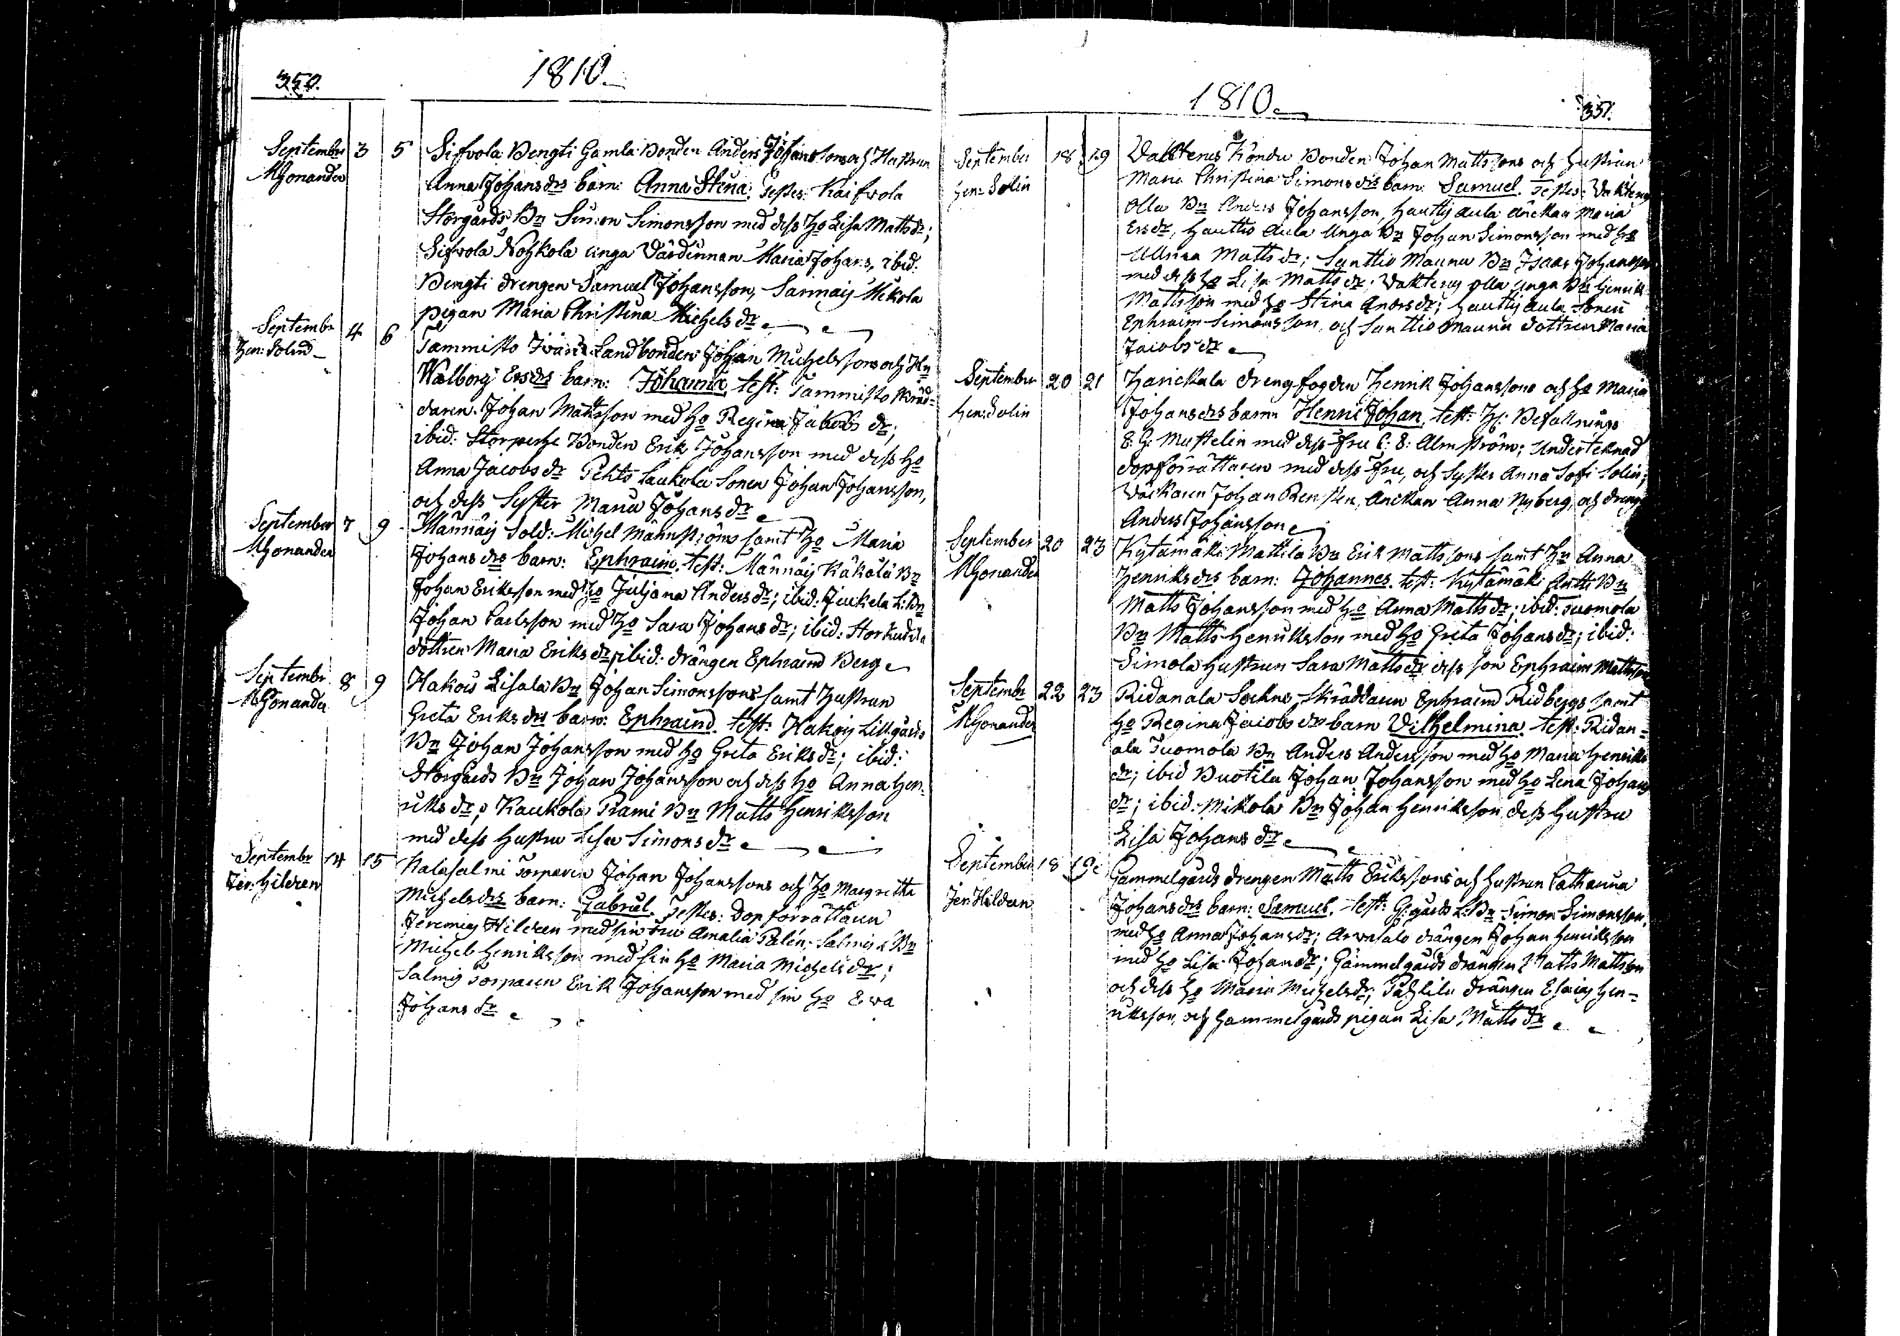 350.
1810.
September 3 5 Sifvola Bengti Gamla Bonden Anders Johanssons och Hustrun
MGonander Anna Johans drs barn: Anna Stina. Testes: Kaifvola
Storgårds Bn Simon Simonsson med dess Ho Lisa Matts dr;
Sifvola Noykola unga Värdinnan Maria Johans, ibid:
Bengti drengen Samuel Johansson, Sarinaij Mikola
pigan Maria Christina Michels dr
Septembr 4 6 Tammisto Iväri Landbonden Johan Michelssons och Hn
Hen: Solin Walborg Ers drs barn: Johanna, test: Tammisto skräd-
daren Johan Mattsson med Ho Regina Jakobs dr;
ibid: Storperhe Bonden Erik Johansson med dess Ho
Anna Jacobs dr Pehts Laukola Sonen Johan Johansson,
och dess Syster Maria Johans dr
September 7 9 Männäij Sold: Michel Mähnströms samt Ho Maria
MGonander Johans drs barn: Ephraim, test: Männäij Käkölä Bn
Johan Eriksson med Ho Juliana Anders dr; ibid: Juckela L: Bn
Johan Carlsson med Ho Sara Johans dr; ibid:
dottren Maria Eriks dr, ibid: drängen Ephraim Berg
Septembr 8 9 Hakois Lisala Bn Johan Simonssons samt Hustrun
MGonander Greta Eriks drs barn: Ephraim. test: Hakois Lillgårds
Bn Johan Johansson med Ho Greta Eriks dr; ibid:
Storgårds Bn Johan Johansson och dess Ho Anna Hen-
riks dr, Kaukola Prami Bn Matts Henriksson
med dess Hustru Lisa Simons dr
Septembr 14 15 Kalasalmi Torparen Johan Johanssons och Ho Margretha
Jer. Hildeen Michels drs barn: Gabriel. Testes: Dopförrättaren
Jeremias Hildeen med sin fru Amalia Palén; Salmis L Bn
Michels Henriksson med sin Ho Maria Michels dr;
Salmis Torparen Erik Johansson med sin Ho Eva
Johans dr
1810.
351.
September 18 19 Vahteris Köndu Bonden Johan Mattssons och Hustrun
Hen: Solin Maria Christina Simons drs barn: Samuel. Testes: Vahteris
Olla Bn Anders Johansson, Hauttis Aula änckan Maria
Ers dr, Hauttis Aula Unga Bn Johan Simonsson med Ho
Ulrica Matts dr; Santtio Maunu Bn Isaac Johansson
med dess Ho Lisa Matts dr; Vahteris Olla unga Bn Henrik
Mattsson med Ho Stina Anders dr; Hauttis Aula Sonen
Ephraim Simonsson, och Santtio Maunu dottren Maria
Jacobs dr
September 20 21 Harickala Drengfogden Henrik Johanssons och Ho Maria
Hen: Solin Johans drs barn: Henric Johan, test: H: Befallnings
E. G. Mustelin med dess Fru C: E: Almström; Undertecknad
dopförrättaren med dess Fru, och Syster Anna Sofi Solin;
Johan Renstén, Änckan Anna Nyberg, och dreng
Anders Johansson
September 20 23 Kytämäki Mattila Bn Erik Mattssons samt Hn Anna
MGonander Henriks drs barn: Johannes. test: Kytämäki Perttu Bn
Matts Johansson med Ho Anna Matts dr; ibid: Tuomola
Bn Matts Henriksson med Ho Greta Johans dr; ibid:
Simola Hustrun Sara Matts dr dess son Ephraim Mattsson
Septembr 22 23 Ridanala Sockne Skräddaren Ephraim Ridbergs samt
MGonander Ho Regina Jacobs drs barn Vilhelmina. test: Ridan-
ala Tuomola Bn Anders Andersson med Ho Maria Henriks
dr; ibid Buotila Johan Johansson med Ho Lena Johans
dr; ibid: Mikola Bn Johan Henriksson dess Hustru
Lisa Johans dr
September 18 19 Gammelgårds drengen Matts Erikssons och hustrun Catharina
Jer Hildeen Johans drs barn: Samuel, test: G:gårds L: Bn Simon Simonsson,
med Ho Anna Johans dr; Arvasalo drängen Johan Henriksson
med Ho Lisa Johans dr; Gammelgårds drängen Matts Mattsson
och dess Ho Maria Michels dr; Pahlila drängen Esaias Hen-
riksson, och Gammelgårds pigan Lisa Matts dr